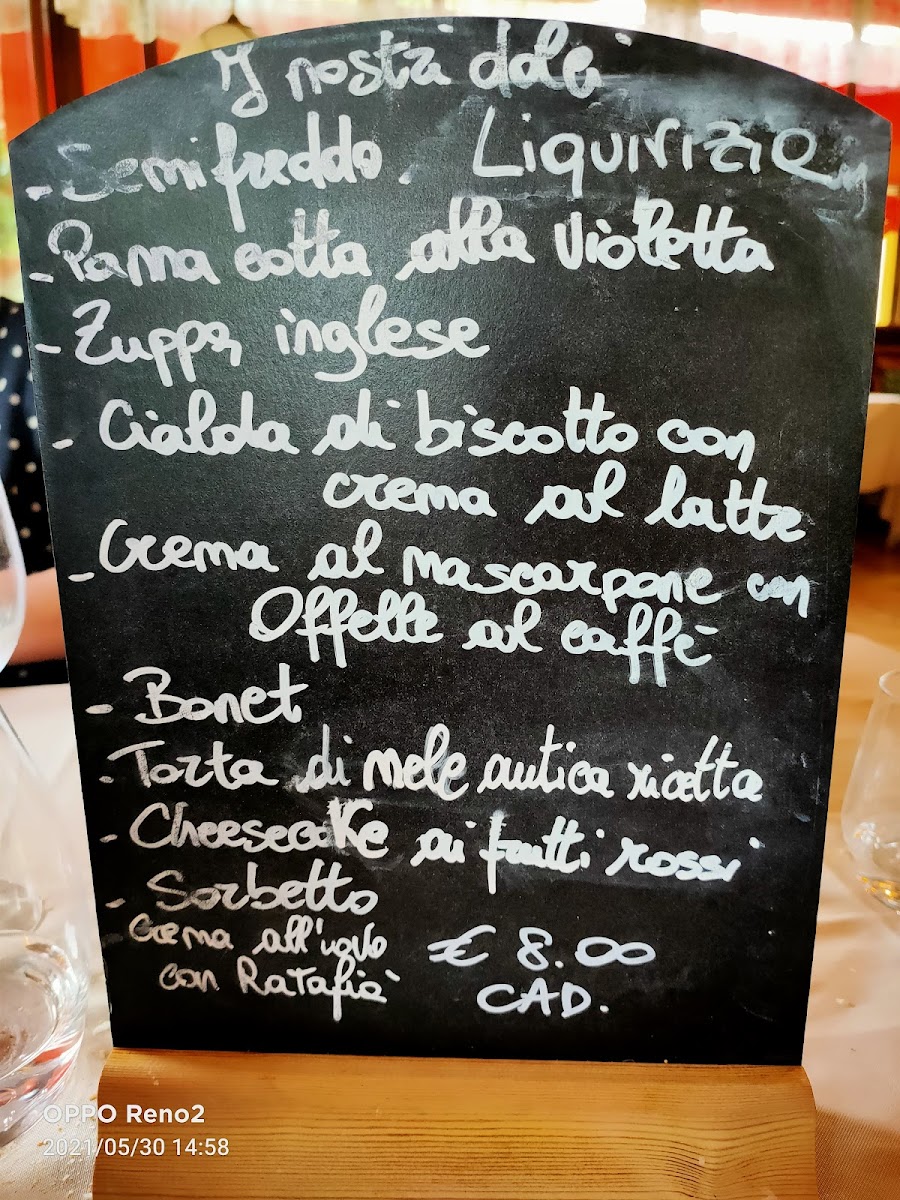 I nostri dolci
- Semifreddo. Liquirizia
- Panna cotta alla violetta
- Zuppa inglese
- Cialda di biscotto con
crema al latte
- Crema al mascarpone con
Offelle al caffè
- Bonet
- Torta di mele antica ricetta
- Cheesecake ai frutti rossi
- Sorbetto
Crema all'uovo
con Ratafià
€ 8.00
CAD.
OPPO Reno2
2021/05/30 14:58